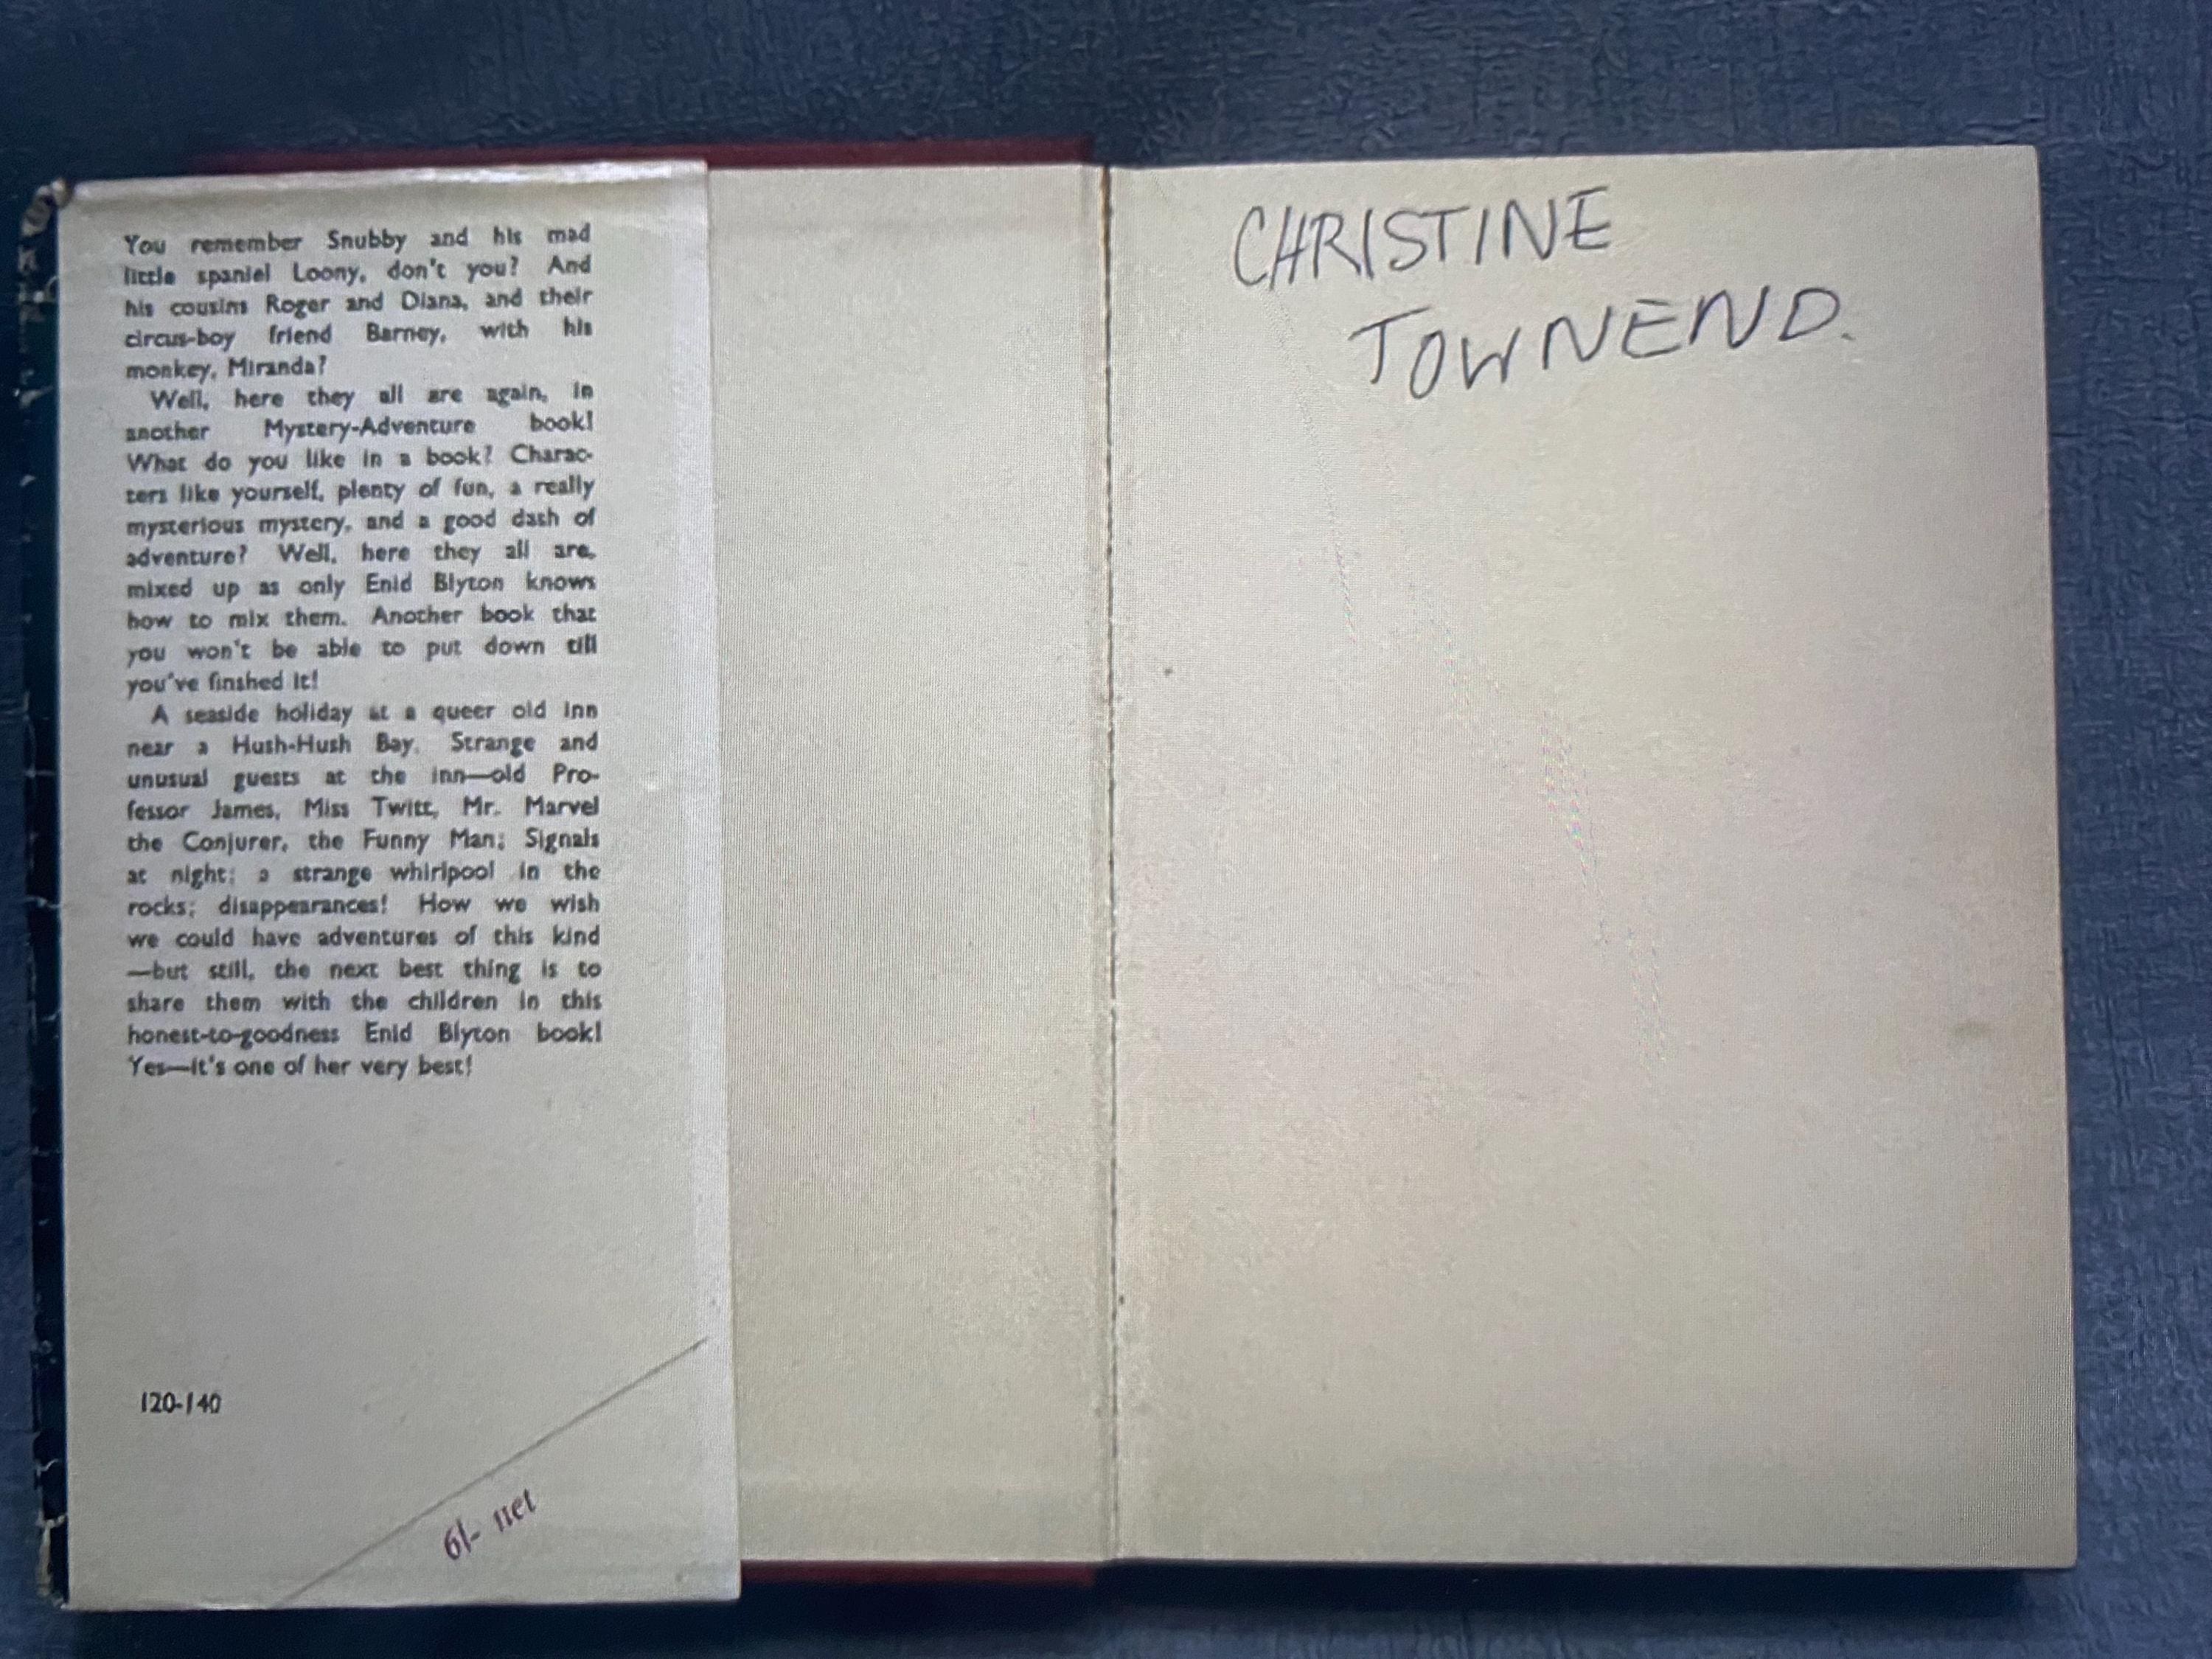 You remember Snubby and his mad
little spaniel Loony, don't you? And
his cousins Roger and Diana, and their
circus-boy friend Barney, with his
monkey, Miranda?
Well, here they all are again, in
another Mystery-Adventure book!
What do you like in a book? Charac-
ters like yourself, plenty of fun, a really
mysterious mystery, and a good dash of
adventure? Well, here they all are,
mixed up as only Enid Blyton knows
how to mix them. Another book that
you won't be able to put down till
you've finshed it!
A seaside holiday at a queer old inn
near a Hush-Hush Bay. Strange and
unusual guests at the inn—old Pro-
fessor James, Miss Twitt, Mr. Marvel
the Conjurer, the Funny Man; Signals
at night; a strange whirlpool in the
rocks; disappearances! How we wish
we could have adventures of this kind
—but still, the next best thing is to
share them with the children in this
honest-to-goodness Enid Blyton book!
Yes—it's one of her very best!
120-140
6/- net
CHRISTINE
TOWNEND.